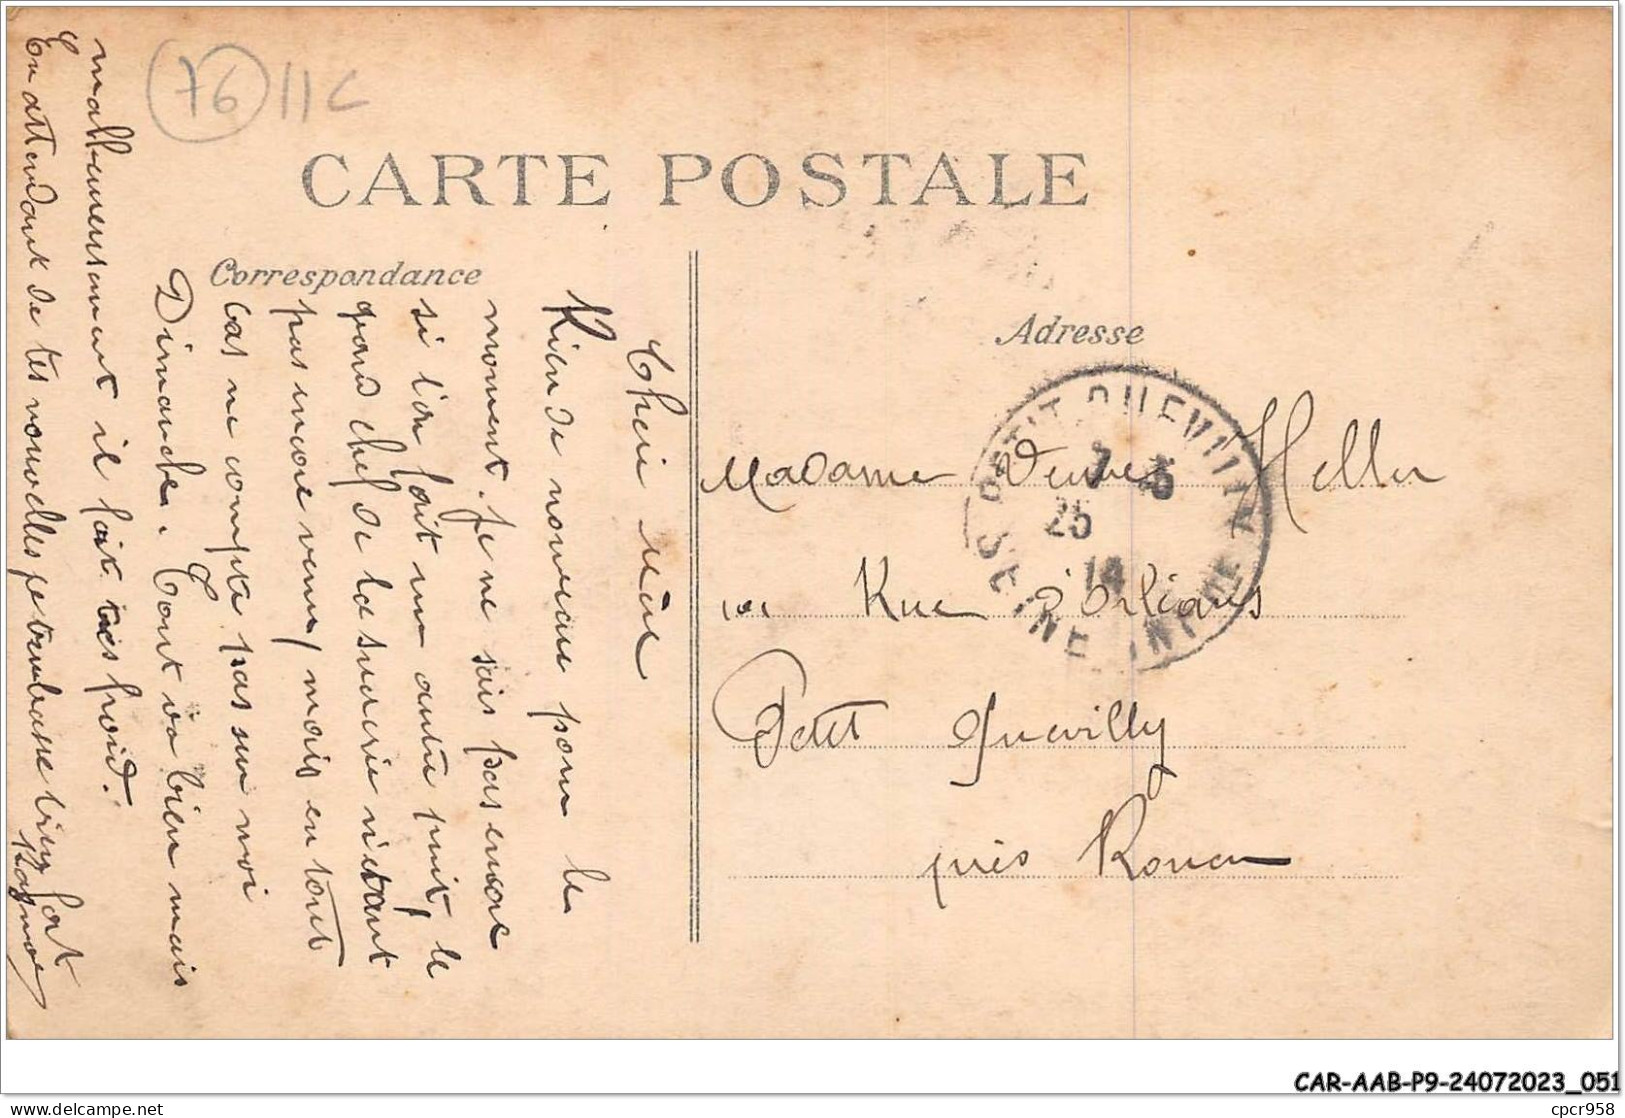 76 11C
CARTE POSTALE
Correspondance
Adresse
Chère mère
Rien de nouveau pour le
moment. Je ne sais pas encore
si l'on fait un autre puit, le
grand chef de la sucrie n'étant
pas encore venu, mais en tout
cas ne compte pas sur moi
Dimanche. Tout va bien mais
malheureusement il fait très froid.
En attendant de tes nouvelles je t'embrasse bien fort
Madame Veuve Heller
Rue d'Orléans
Petit Quevilly
près Rouen
PETIT QUEVILLY
7 5
25
14
SEINE INFRE
CAR-AAB-P9-24072023_051
delcampe.net
cpcr958